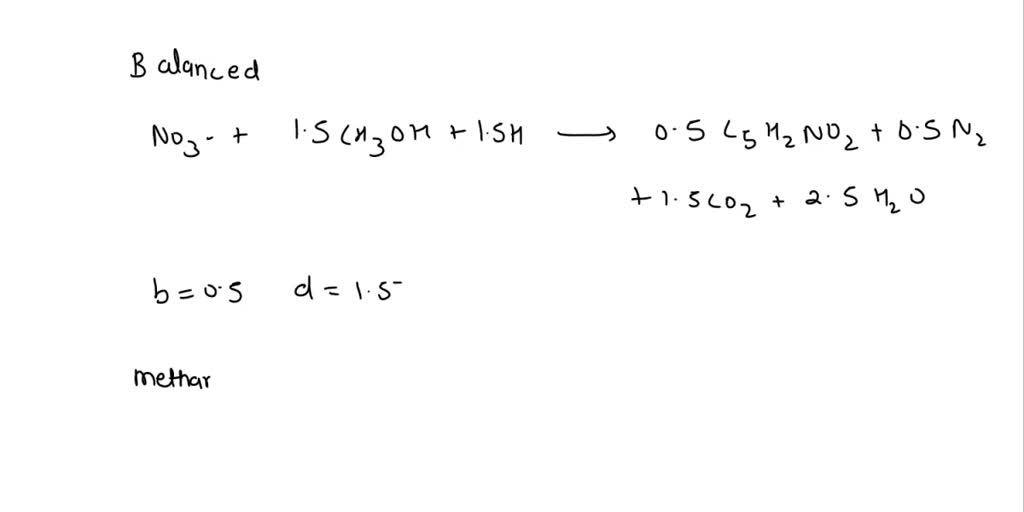 Balanced
NO3- + 1.5CH3OH + 1.5H ⟶ 0.5 C5H2NO2 + 0.5 N2
+ 1.5CO2 + 2.5 H2O
b = 0.5 d = 1.5-
methar